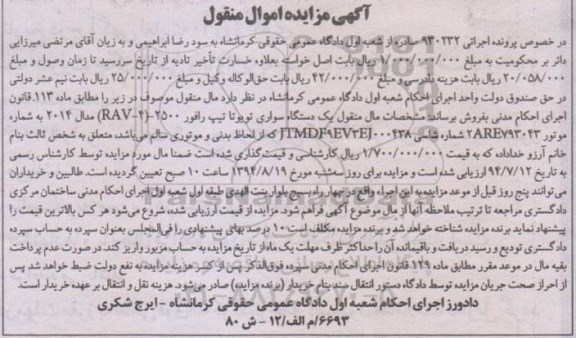 آگهی مزایده اموال منقول
در خصوص پرونده اجرائی ۹۳۰۲۳۲ صادره از شعبه اول دادگاه عمومی حقوقی کرمانشاه به سود رضا ابراهیمی و به زیان آقای مرتضی میرزایی
دائر بر محکومیت به مبلغ ۱/۰۰۰/۰۰۰/۰۰۰ ریال بابت اصل خواسته بعلاوه خسارت تأخیر تادیه از تاریخ سررسید تا زمان وصول و مبلغ
۲۰/۰۵۸/۰۰۰ ریال بابت هزینه دادرسی و مبلغ ۴۲/۰۰۰/۰۰۰ ریال بابت حق الوکاله وکیل و مبلغ ۲۵/۰۰۰/۰۰۰ ریال بابت نیم عشر دولتی
در حق صندوق دولت واحد اجرای احکام شعبه اول دادگاه عمومی کرمانشاه در نظر دارد مال منقول موصوف در زیر را مطابق ماده ۱۱۳ قانون
اجرای احکام مدنی بفروش برساند: مشخصات مال منقول یک دستگاه سواری تویوتا تیپ رافور ۲۵۰۰-(RAV-۴) مدل ۲۰۱۴ به شماره
موتور ۲ARE۷۹۳۰۴۳ شماره شاسی JTMDF۹EV۳EJ۰۰۰۴۳۸ که از لحاظ بدنی و موتوری سالم می باشد، متعلق به شخص ثالث بنام
خانم آرزو خداداده که به قیمت ۱/۷۰۰/۰۰۰/۰۰۰ ریال کارشناسی و قیمت گذاری شده است ضمنا مال مورد مزایده توسط کارشناس رسمی
به تاریخ ۹۴/۷/۱۲ ارزیابی شده است و مزایده برای روز سه شنبه مورخ ۱۳۹۴/۸/۱۹ ساعت ۱۰ صبح تعیین گردیده است. طالبین و خریداران
می توانند پنج روز قبل از موعد مزایده به این اجراء واقع در چهار راه بسیج بلوار بنت الهدی طبقه اول شعبه اول اجرای احکام مدنی ساختمان مرکزی
دادگستری مراجعه تا ترتیب ملاحظه آنها از مال موضوع آگهی فراهم شود. مزایده از قیمت ارزیابی شده، شروع می شود هر کس بالاترین قیمت را
پیشنهاد نماید برنده مزایده شناخته خواهد شد و برنده مزایده مکلف است ۱۰ درصد بهای پیشنهادی را فی المجلس بعنوان سپرده به حساب سپرده
دادگستری تودیع و رسید دریافت و باقیمانده آن را حداکثر ظرف مهلت یک ماه از تاریخ مزایده به حساب مزبور واریز کند. در صورت عدم پرداخت
بقیه مال در موعد مقرر مطابق ماده ۱۲۹ قانون اجرای احکام مدنی سپرده فوق الذکر پس از کسر هزینه مزایده به نفع دولت ضبط خواهد شد پس
از احراز صحت جریان مزایده توسط دادگاه دستور انتقال سند بنام خریدار (برنده مزایده) صادر می شود. هزینه نقل و انتقال بر عهده خریدار است.
دادورز اجرای احکام شعبه اول دادگاه عمومی حقوقی کرمانشاه - ایرج شکری
۶۶۹۳/م الف/۱۲ - ش ۸۰